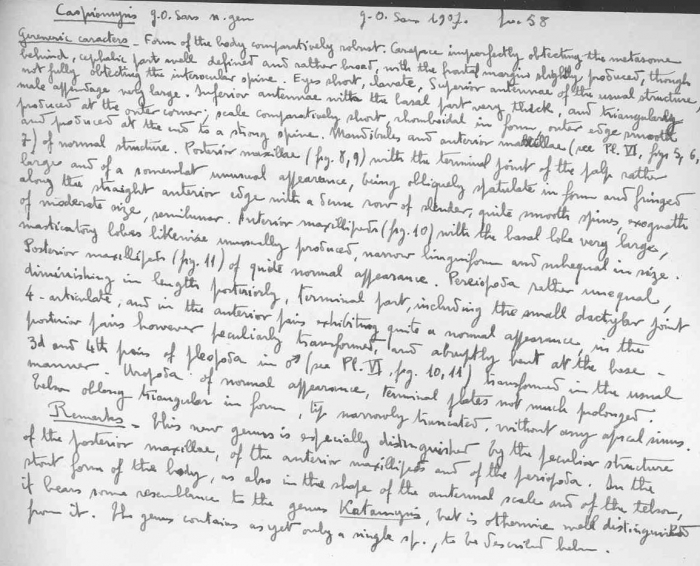 Caspiomysis G.O. Sars n. gen G.O. Sars 1907. p. 58
Generic caracters - Form of the body comparatively robust. Carapace imperfectly obtecting the metasome
behind, cephalic part well defined and rather broad, with the frontal margin slightly produced, though
not fully obtecting the interocular spine. Eyes short, clavate, Superior antennae of the usual structure,
male appendage very large. Inferior antennae with the basal part very thick, and triangularly
produced at the outer corner; scale comparatively short, rhomboidal in form, outer edge smooth
and produced at the end to a strong spine. Mandibules and anterior maxillae (see Pl. VI, figs 5, 6,
7) of normal structure. Posterior maxillae (fig. 8, 9) with the terminal joint of the palp rather
large and of a somewhat unusual appearence, being obliquely spatulate in form and fringed
along the straight anterior edge with a dense row of slender, quite smooth spines, exognath
of moderate size, semilunar. Anterior maxillipeds (fig. 10) with the basal lobe very large,
masticatory lobes likewise unusually produced, narrow linguiform and subequal in size.
Posterior maxillipeds (fig. 11) of quite normal appearance. Pereiopoda rather unequal,
diminishing in length posteriorly, terminal part, including the small dactylar joint
4-articulate, and in the anterior pairs exhibiting quite a normal appearance, in the
posterior pairs however peculiarly transformed, and abruptly bent at the base -
3d and 4th pairs of pleopoda in ♂ (see Pl. VI, fig. 10, 11) transformed in the usual
manner. Uropoda of normal appearance, terminal plates not much prolonged.
Telson oblong triangular in form, tip narrowly truncated, without any apical sinus.
Remarks - This new genus is especially distinguished by the peculiar structure
of the posterior maxillae, of the anterior maxillipeds and of the periopoda. In the
stout form of the body, as also in the shape of the antennal scale and of the telson,
it bears some resemblance to the genus Katamysis, but is otherwise well distinguished
from it. The genus contains as yet only a single sp., to be described below.